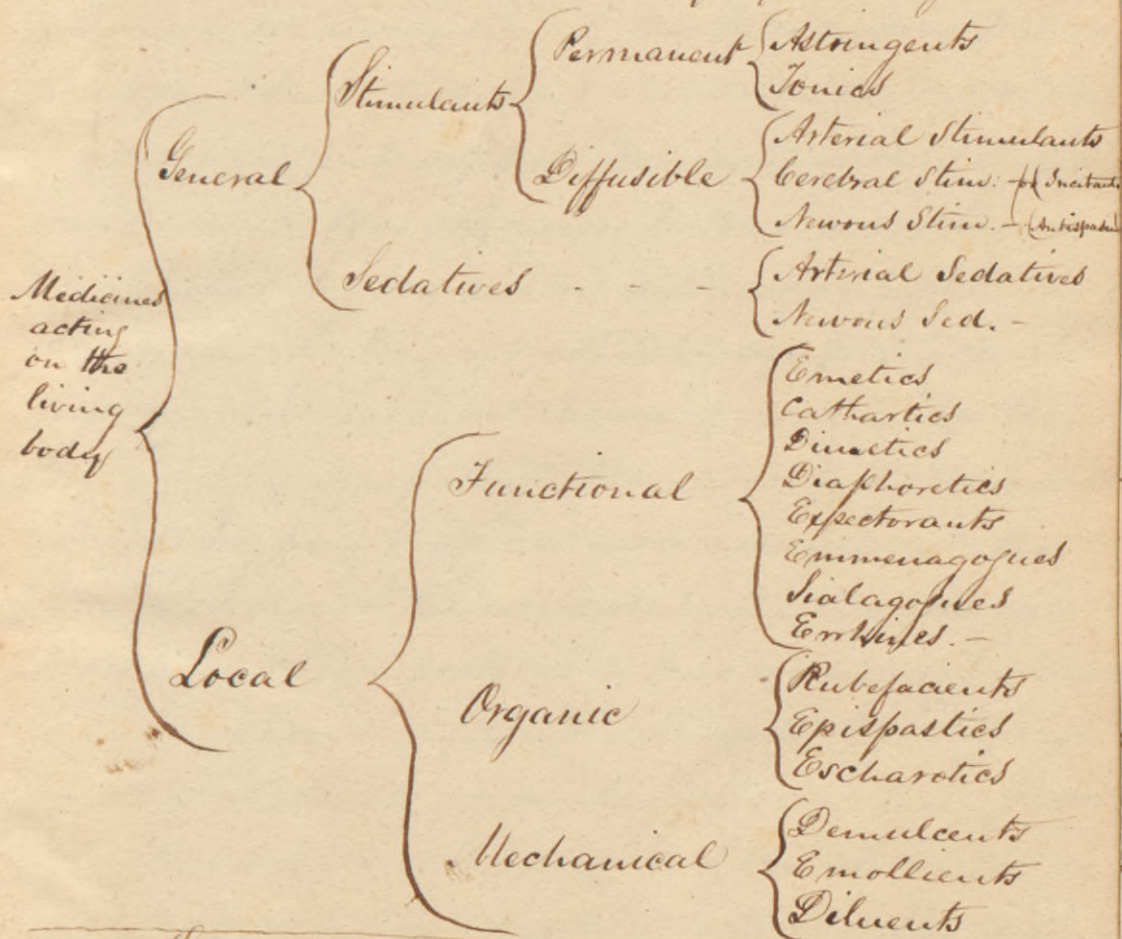 Medicines
acting
on the
living
body
General
Stimulants
Permanent
Astringents
Tonics
Diffusible
Arterial Stimulants
Cerebral Stim:
Nervous Stim. -
Sedatives - - -
Arterial Sedatives
Nervous Sed. -
Local
Functional
Emetics
Cathartics
Diuretics
Diaphoretics
Expectorants
Emmenagogues
Sialagogues
Errhines. -
Organic
Rubefacients
Epispastics
Escharotics
Mechanical
Demulcents
Emollients
Diluents